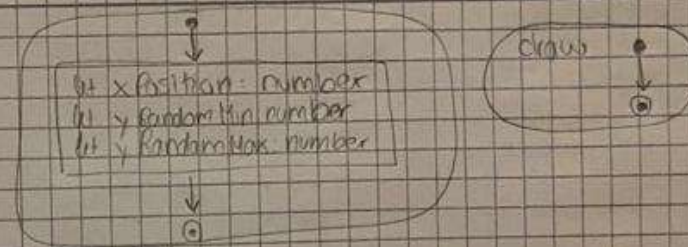 let xPosition: number
let yRandomMin: number
let yRandomMax: number
draw